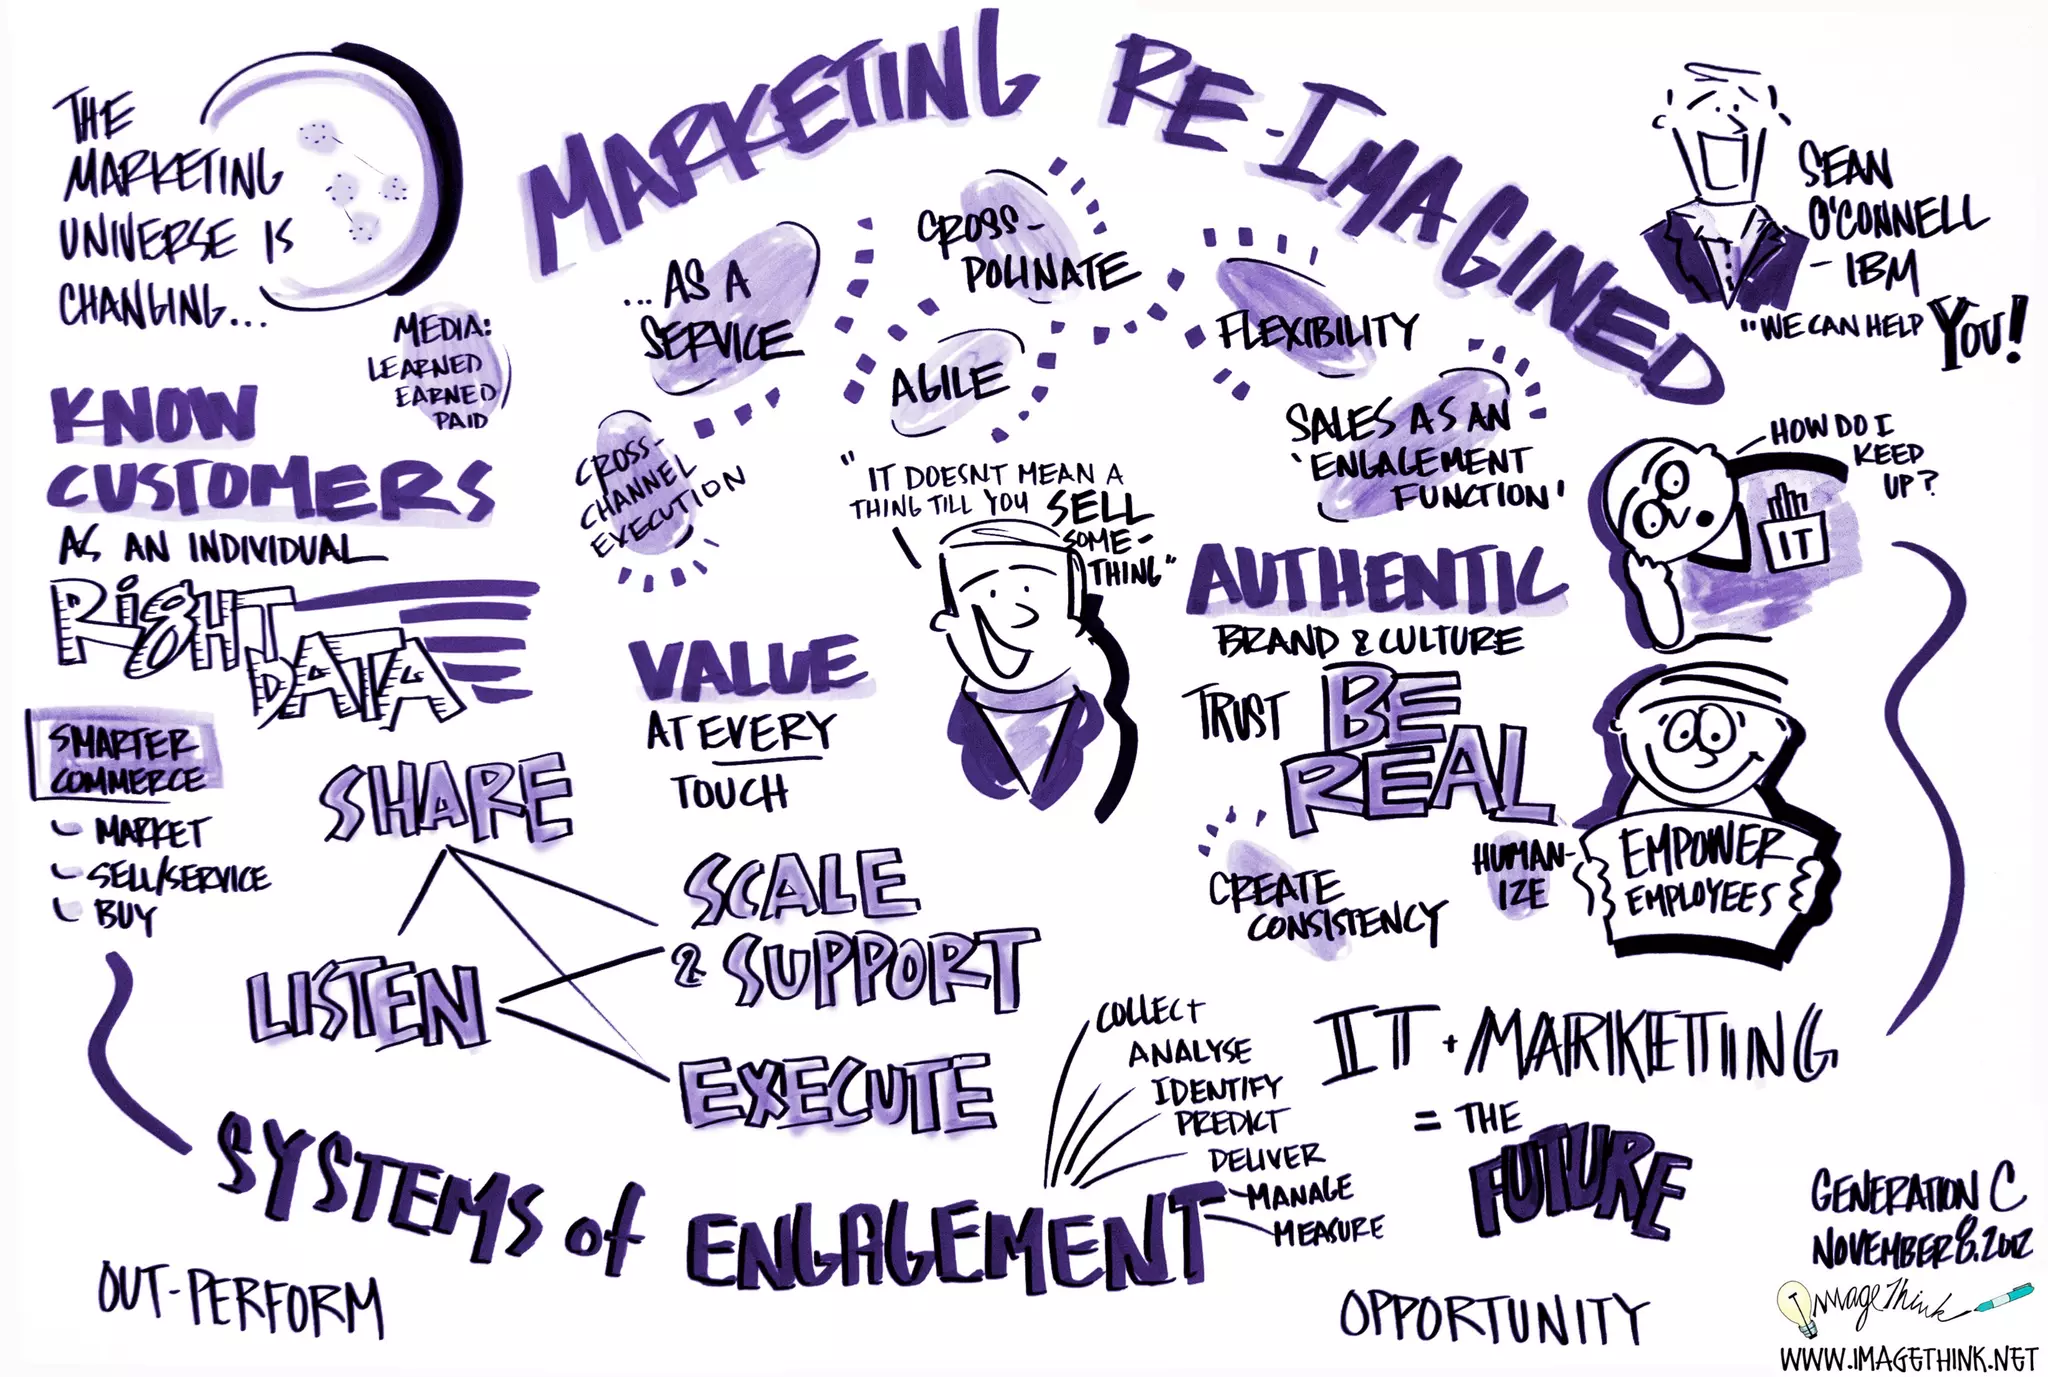 MARKETING RE-IMAGINED
THE
MARKETING
UNIVERSE IS
CHANGING...
MEDIA:
LEARNED
EARNED
PAID
KNOW
CUSTOMERS
AS AN INDIVIDUAL
RIGHT
DATA
SMARTER
COMMERCE
- MARKET
- SELL/SERVICE
- BUY
...AS A
SERVICE
CROSS-
POLINATE
AGILE
FLEXIBILITY
CROSS-
CHANNEL
EXECUTION
SALES AS AN
'ENGAGEMENT
FUNCTION'
SEAN
O'CONNELL
- IBM
"WE CAN HELP YOU!
HOW DO I
KEEP
UP?
IT
"IT DOESNT MEAN A
THING TILL YOU SELL
SOME-
THING"
VALUE
AT EVERY
TOUCH
AUTHENTIC
BRAND & CULTURE
TRUST
BE
REAL
CREATE
CONSISTENCY
HUMAN-
IZE
EMPOWER
EMPLOYEES
SHARE
LISTEN
SCALE
& SUPPORT
EXECUTE
SYSTEMS of ENGAGEMENT
COLLECT
ANALYSE
IDENTIFY
PREDICT
DELIVER
MANAGE
MEASURE
IT + MARKETING
= THE
FUTURE
OUT-PERFORM
OPPORTUNITY
GENERATION C
NOVEMBER 8, 2012
IMAGETHINK
WWW.IMAGETHINK.NET